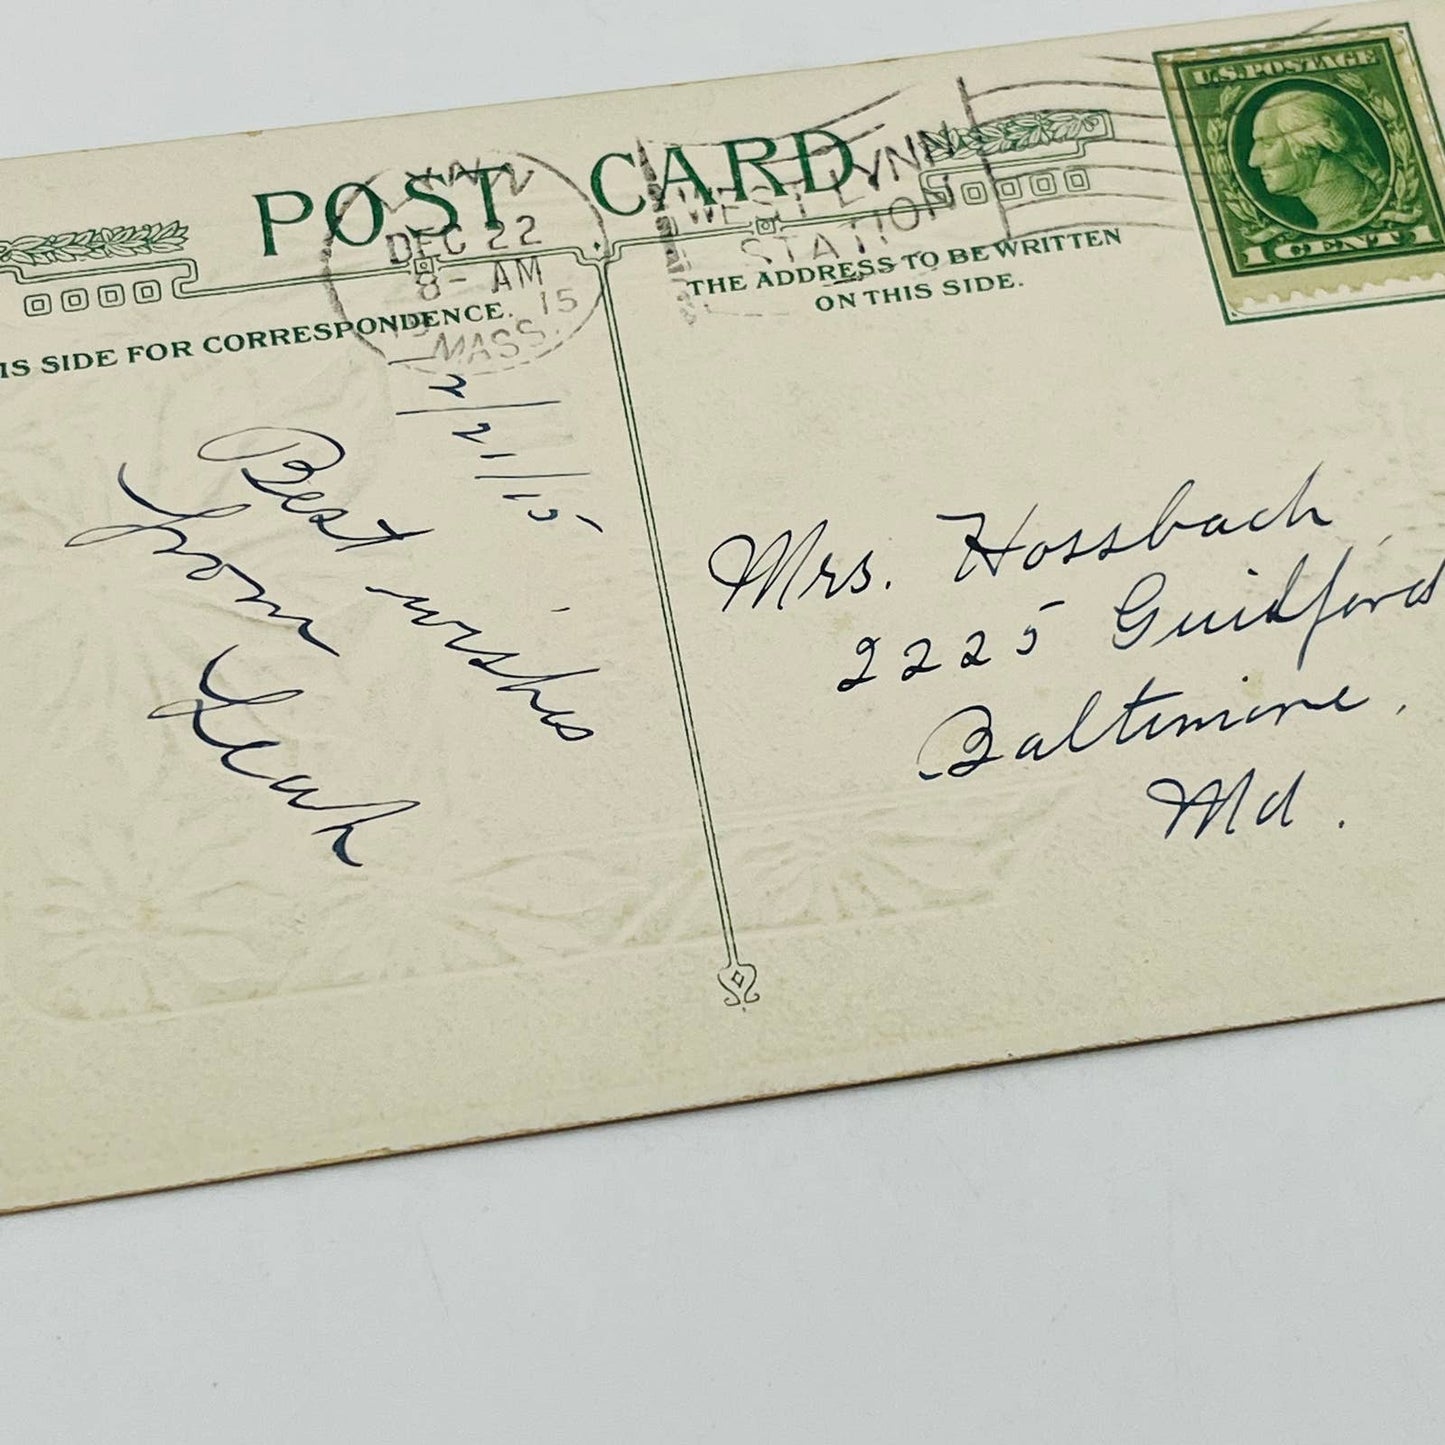 POST CARD
LYNN
DEC 22
8- AM
15
MASS.
WEST LYNN
STATION
U.S. POSTAGE
1 CENT 1
IS SIDE FOR CORRESPONDENCE.
THE ADDRESS TO BE WRITTEN
ON THIS SIDE.
12/21/15
Best wishes
from
Leah
Mrs. Hossbach,
2225 Guilford
Baltimore,
Md.